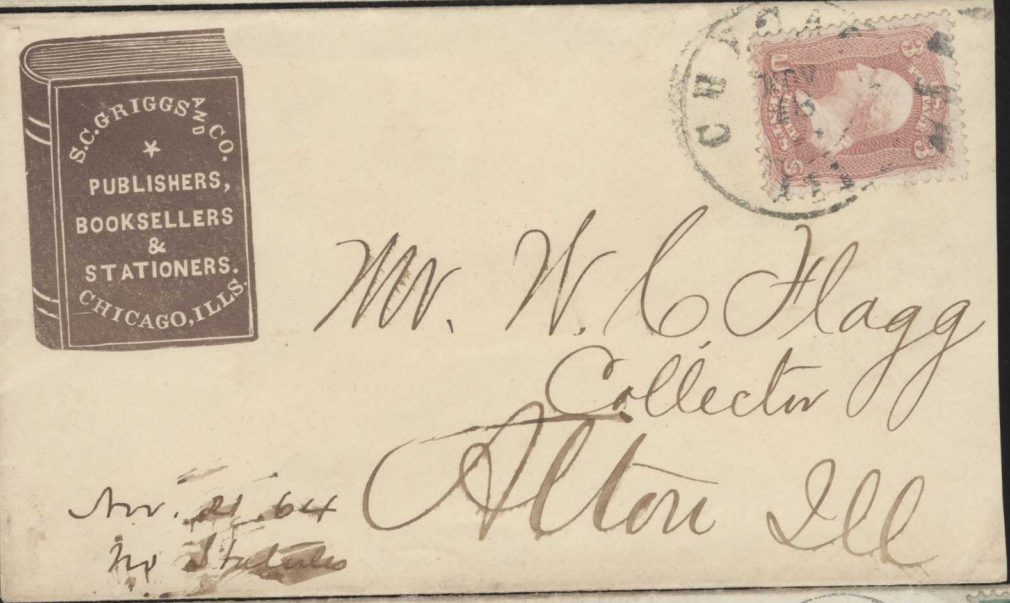 S.C. GRIGGS AND CO.
PUBLISHERS,
BOOKSELLERS
&
STATIONERS.
CHICAGO, ILLS.
CHICAGO
NOV
U
3
3
Mr. W. C. Flagg
Collector
Alton Ill
Nov. 21. 64
Statutes